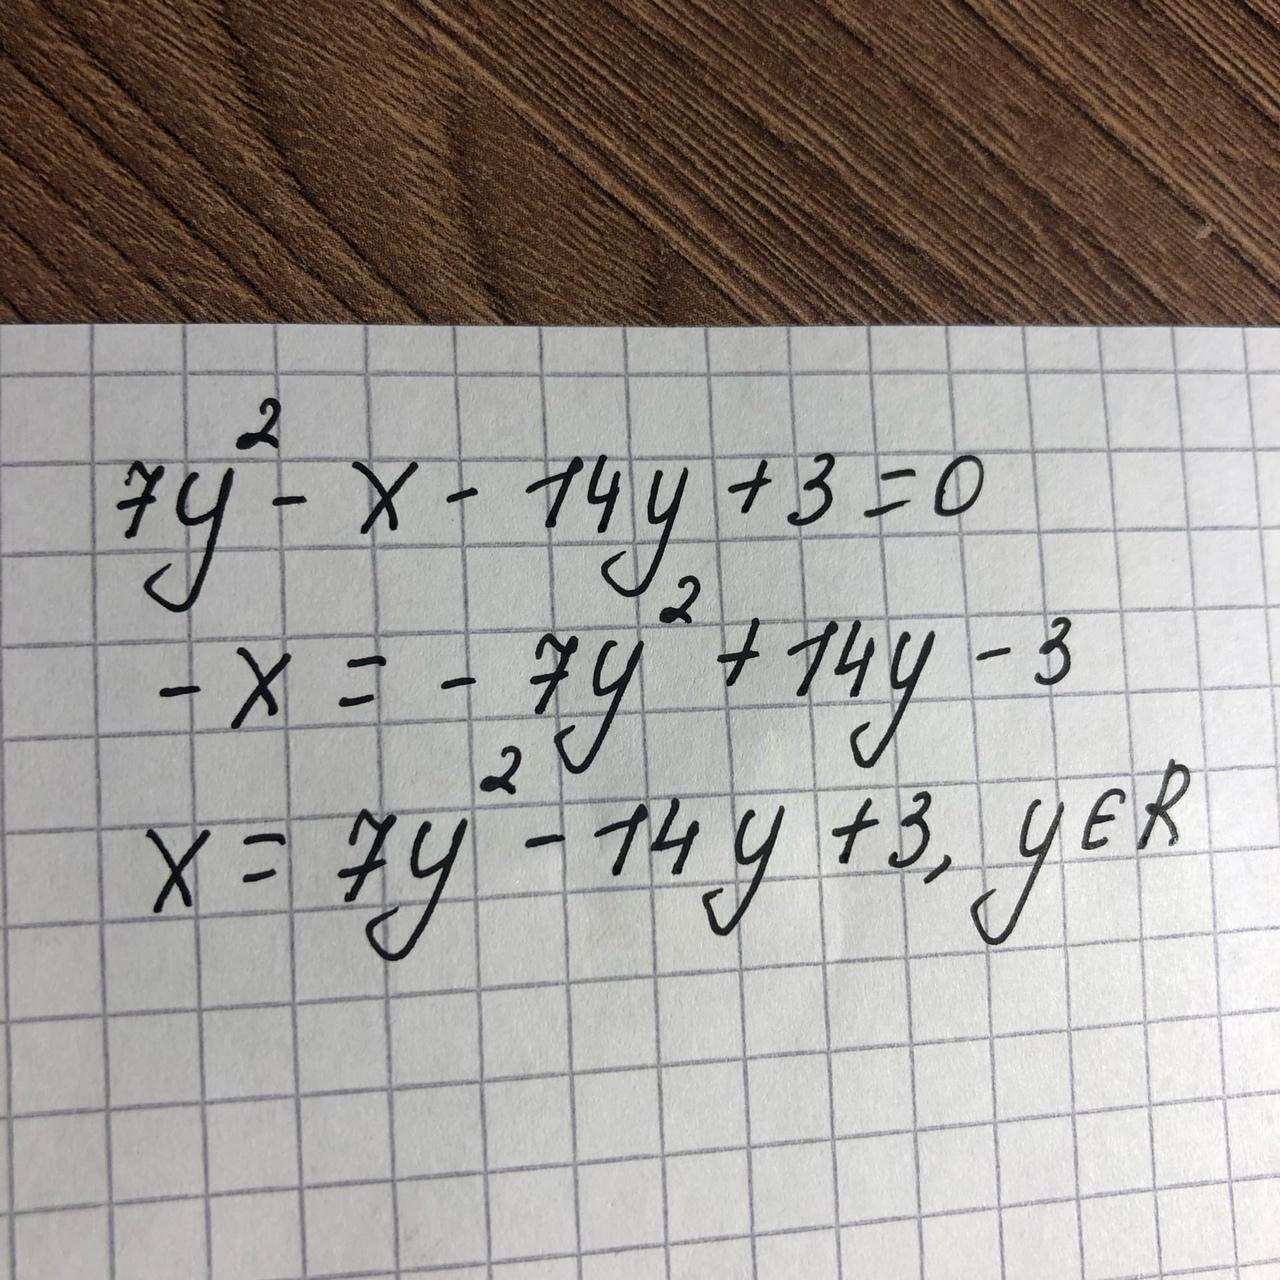 7y² - x - 14y + 3 = 0
- x = - 7y² + 14y - 3
x = 7y² - 14y + 3, y ∈ R